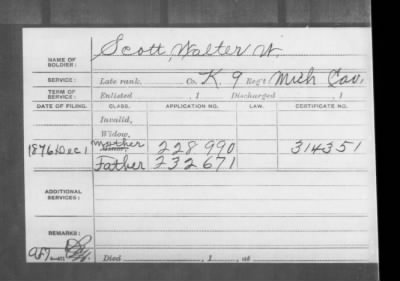 NAME OF SOLDIER: Scott, Walter W.
SERVICE: Late rank, Co. K, 9 Reg't Mich Cav.
TERM OF SERVICE: Enlisted , 1 Discharged , 1
DATE OF FILING. CLASS. APPLICATION NO. LAW. CERTIFICATE NO.
Invalid,
Widow,
1876 Dec 1 Mother 228990 314351
Father 232671
ADDITIONAL SERVICES:
REMARKS:
Died , 1 , at